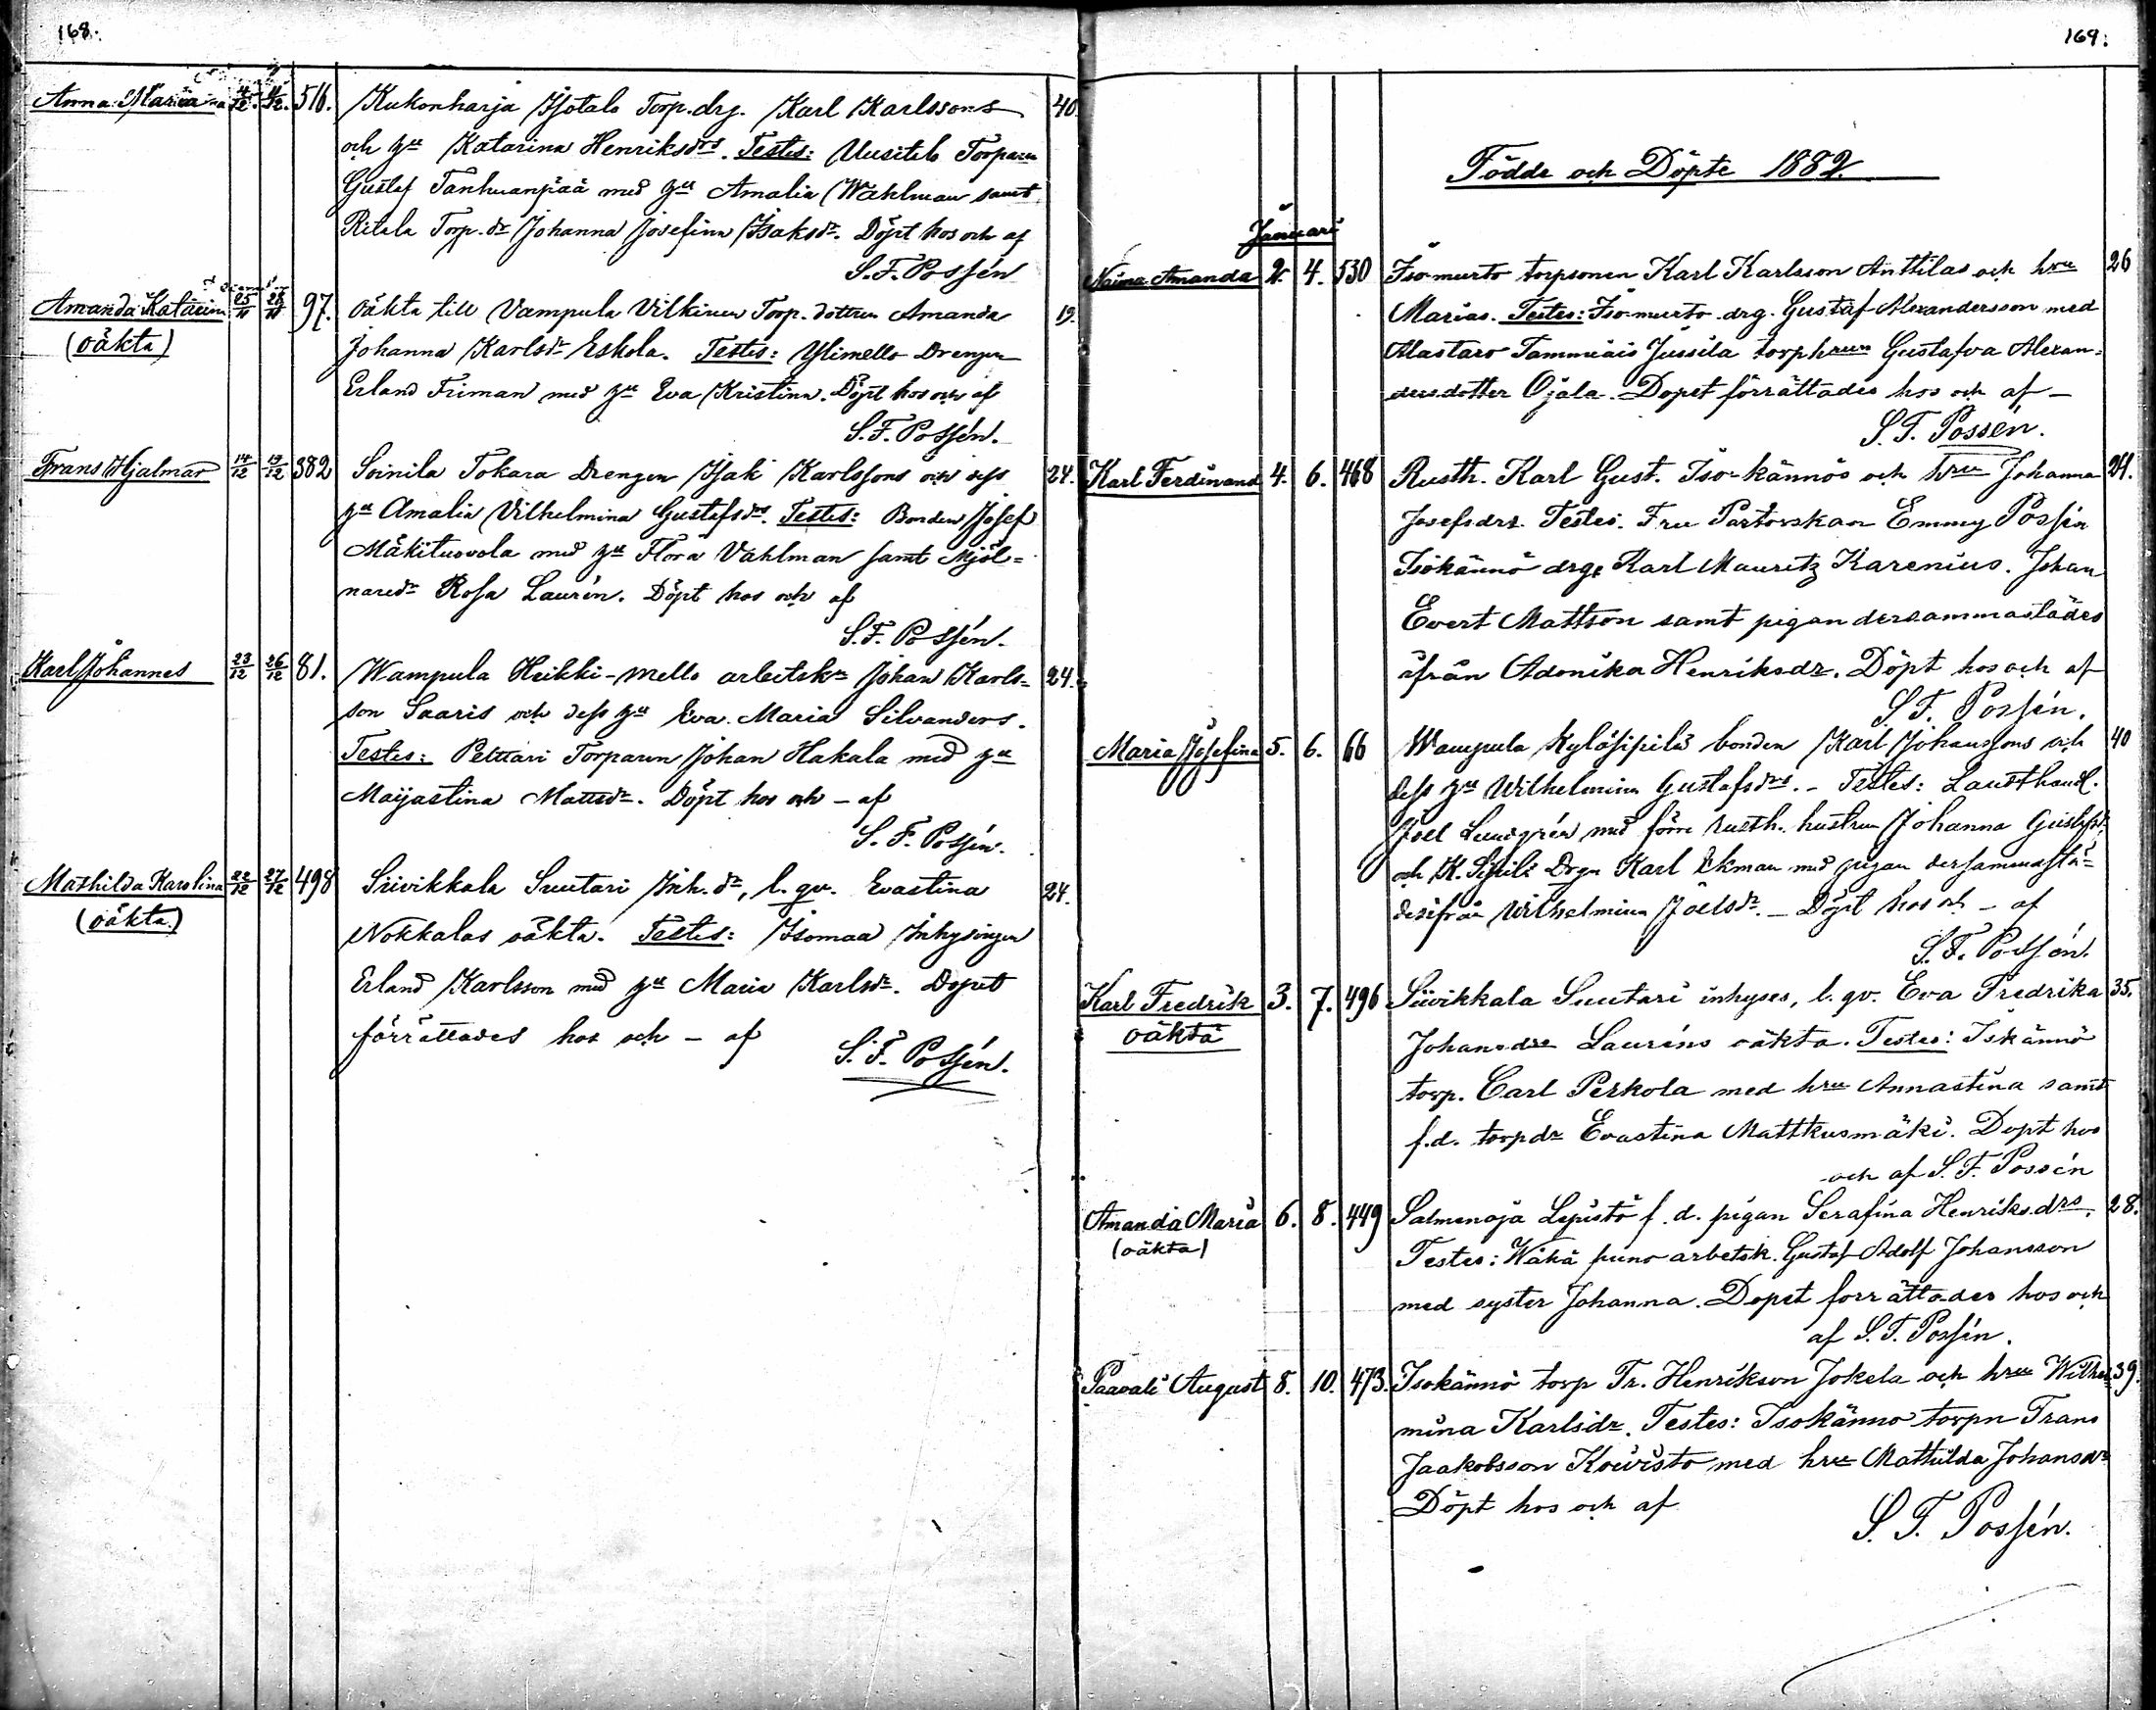 168.
Anna Maria 4/12. 11/12. 516. Kukonharja Isotalo Torp. drg. Karl Karlssons 40
och hu Katarina Henriksdrs. Testes: Uusitalo Torparen
Gustaf Tanhuanpää med hu Amalia Wahlman samt
Ritala Torp. dr Johanna Josefina Isaksdr. Döpt hos och af
S. F. Possén
Amanda Katarina 25/11 28/11 97. Oäkta till Vampula Vilkinen Torp. dottren Amanda 19.
(oäkta) Johanna Karlsdr Eskola. Testes: Ylimello Drengen
Erland Friman med hu Eva Kristina. Döpt hos och af
S. F. Possén.
Frans Hjalmar 14/12 19/12 382 Soinila Tokara Drengen Isak Karlssons och dess 24.
hu Amalia Vilhelmina Gustafsdrs. Testes: Bonden Josef
Mäkituovola med hu Flora Vahlman samt Mjöl=
naredr Rosa Laurén. Döpt hos och af
S. F. Possén.
Karl Johannes 23/12 26/12 81. Wampula Heikki-mello arbeitskn Johan Karls= 24.
son Saaris och dess hu Eva Maria Silvanders.
Testes: Pelttari Torparen Johan Hakala med hu
Maijastina Mattsdr. Döpt hos och – af
S. F. Possén.
Mathilda Karolina 22/12 27/12 498 Siivikkala Suutari Inh. dr, l. qv. Evastina 24.
(oäkta.) Nokkalas oäkta. Testes: Isomaa Inhysingen
Erland Karlsson med hu Maria Karlsdr. Dopet
förrättades hos och – af S. F. Possén.
169.
Födde och Döpte 1882.
Januari
Naima Amanda 2. 4. 530 Iso-murto torpsonen Karl Karlsson Anttilas och hru 26
Marias. Testes: Iso-murto drg. Gustaf Alexandersson med
Alastaro Tammiais Jussila torphrun Gustafva Alexan=
dersdotter Ojala. Dopet förrättades hos och af –
S. F. Possén.
Karl Ferdinand 4. 6. 468 Rusth. Karl Gust. Iso-kännös och hru Johanna 24.
Josefsdrs. Testes. Fru Pastorskan Emmy Possén
Isokännö drg. Karl Mauritz Karenius. Johan
Evert Mattson samt pigan dersammastädes
ifrån Adonika Henriksdr. Döpt hos och af
S. F. Possén.
Maria Josefina 5. 6. 66 Wampula Kyläsipilä bonden Karl Johanssons och 40
dess hu Wilhelmina Gustafsdrs. – Testes: Lansthandl.
Joel Lundgrén med förre rusth. hustrun Johanna Gustafsdr.
och K. Sipilä Drgn Karl Ekman med pigan dersammastä=
desifrån Wilhelmina Joelsdr. – Döpt hos och – af
S. F. Possén.
Karl Fredrik 3. 7. 496 Siivikkala Suutari inhyses, l. qv. Eva Fredrika 35.
oäkta Johansdrs Lauréns oäkta. Testes: Iskännö
torp. Carl Perkola med hru Annastina samt
f.d. torpdr Evastina Mattkusmäki. Döpt hos
och af S. F. Possén
Amanda Maria 6. 8. 449 Salmenoja Lepistö f. d. pigan Serafina Henriksdrs. 28.
(oäkta) Testes: Wäkä puno arbetsk. Gustaf Adolf Johansson
med syster Johanna. Dopet förrättades hos och
af S. F. Possén.
Paavali August 8. 10. 473. Isokännö torp Fr. Henrikson Jokela och hru Wilhel= 39.
mina Karlsdr. Testes: Isokännö torpn Frans
Jaakobsson Koivisto med hru Mathilda Johansdr
Döpt hos och af
S. F. Possén.